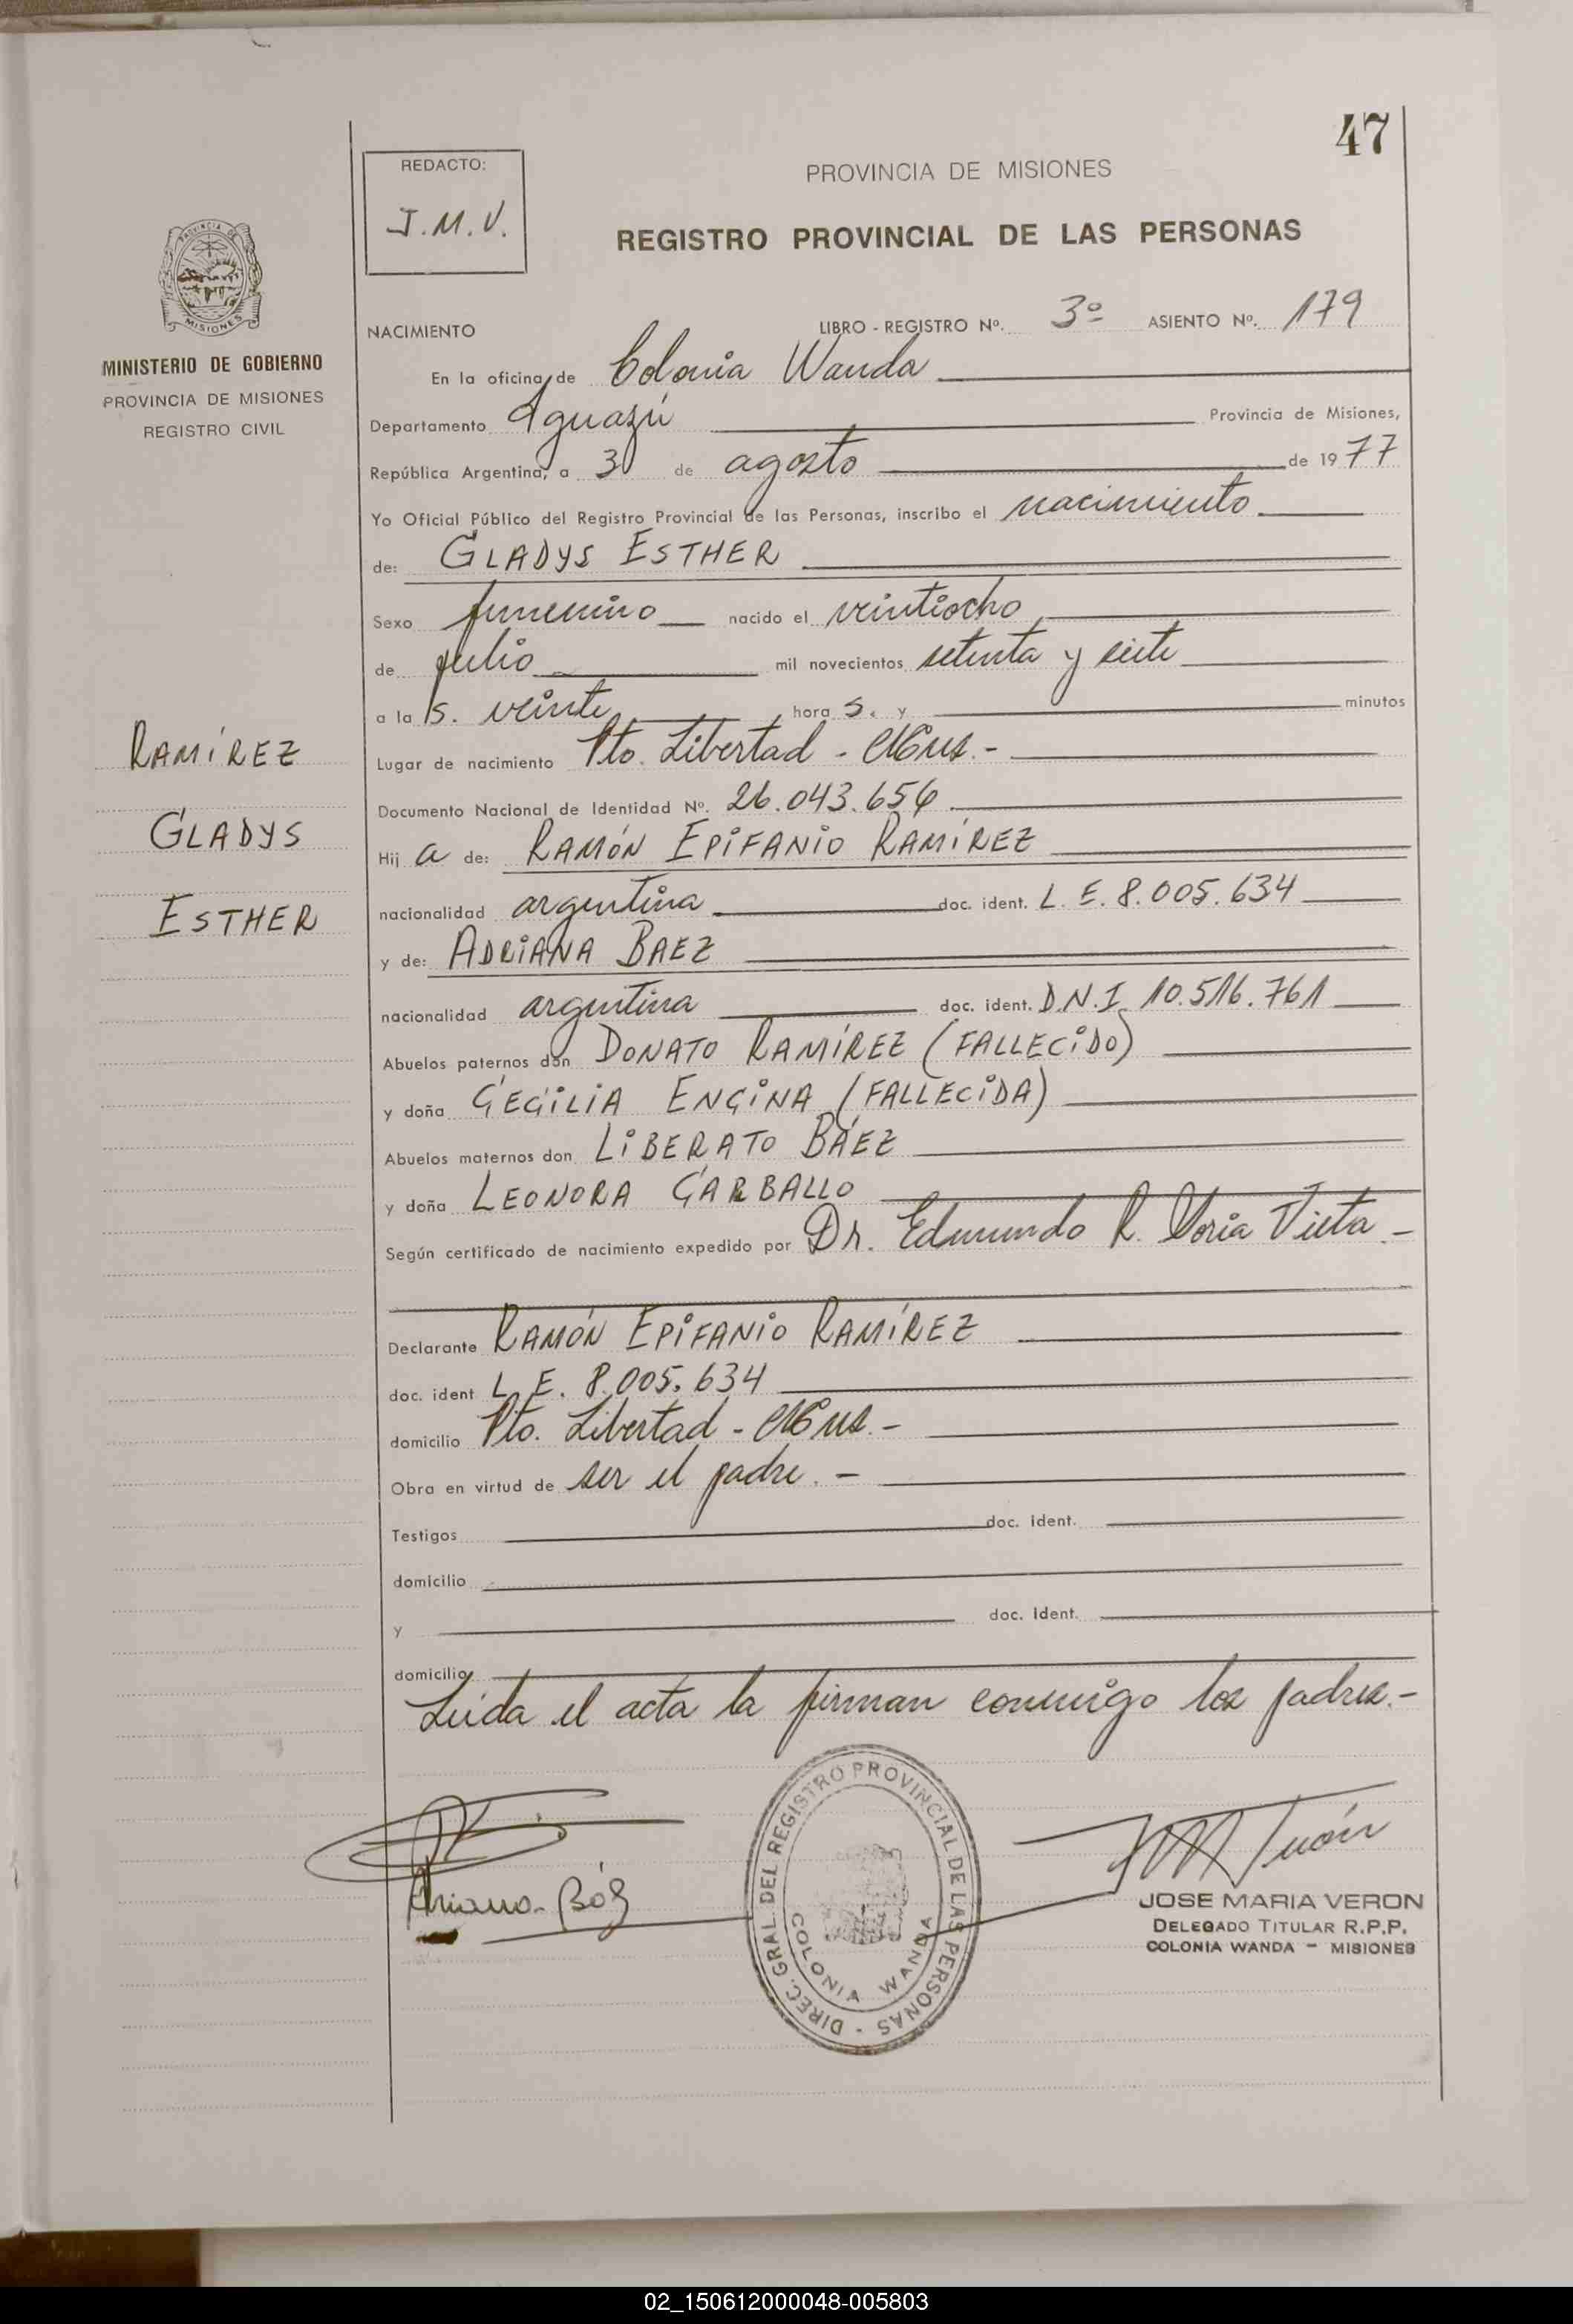 47
REDACTO:
J.M.V.
PROVINCIA DE MISIONES
REGISTRO PROVINCIAL DE LAS PERSONAS
PROVINCIA DE
MISIONES
MINISTERIO DE GOBIERNO
PROVINCIA DE MISIONES
REGISTRO CIVIL
RAMÍREZ
GLADYS
ESTHER
NACIMIENTO LIBRO - REGISTRO Nº. 3º ASIENTO Nº. 179
En la oficina de Colonia Wanda
Departamento Iguazú Provincia de Misiones,
República Argentina, a 30 de agosto de 1977
Yo Oficial Público del Registro Provincial de las Personas, inscribo el nacimiento
de: GLADYS ESTHER
Sexo femenino nacido el veintiocho
de julio mil novecientos setenta y siete
a la s. veinte hora s. y minutos
Lugar de nacimiento Pto. Libertad -
Documento Nacional de Identidad Nº. 26.043.656
Hij a de: RAMÓN EPIFANIO RAMÍREZ
nacionalidad argentina doc. ident. L. E. 8.005.634
y de: ADRIANA BAEZ
nacionalidad argentina doc. ident. D.N.I. 10.516.761
Abuelos paternos don DONATO RAMÍREZ (FALLECIDO)
y doña CECILIA ENCINA (FALLECIDA)
Abuelos maternos don LIBERATO BÁEZ
y doña LEONORA CARBALLO
Según certificado de nacimiento expedido por Dr. Edmundo R. Vieta.-
Declarante RAMÓN EPIFANIO RAMÍREZ
doc. ident L. E. 8.005.634
domicilio Pto. Libertad -
Obra en virtud de ser el padre. -
Testigos doc. ident.
domicilio
y doc. Ident.
domicilio
Leída el acta la firman conmigo los padres.-
DIREC. GRAL. DEL REGISTRO PROVINCIAL DE LAS PERSONAS -
COLONIA WANDA
JOSE MARIA VERON
DELEGADO TITULAR R.P.P.
COLONIA WANDA - MISIONES
02_150612000048-005803